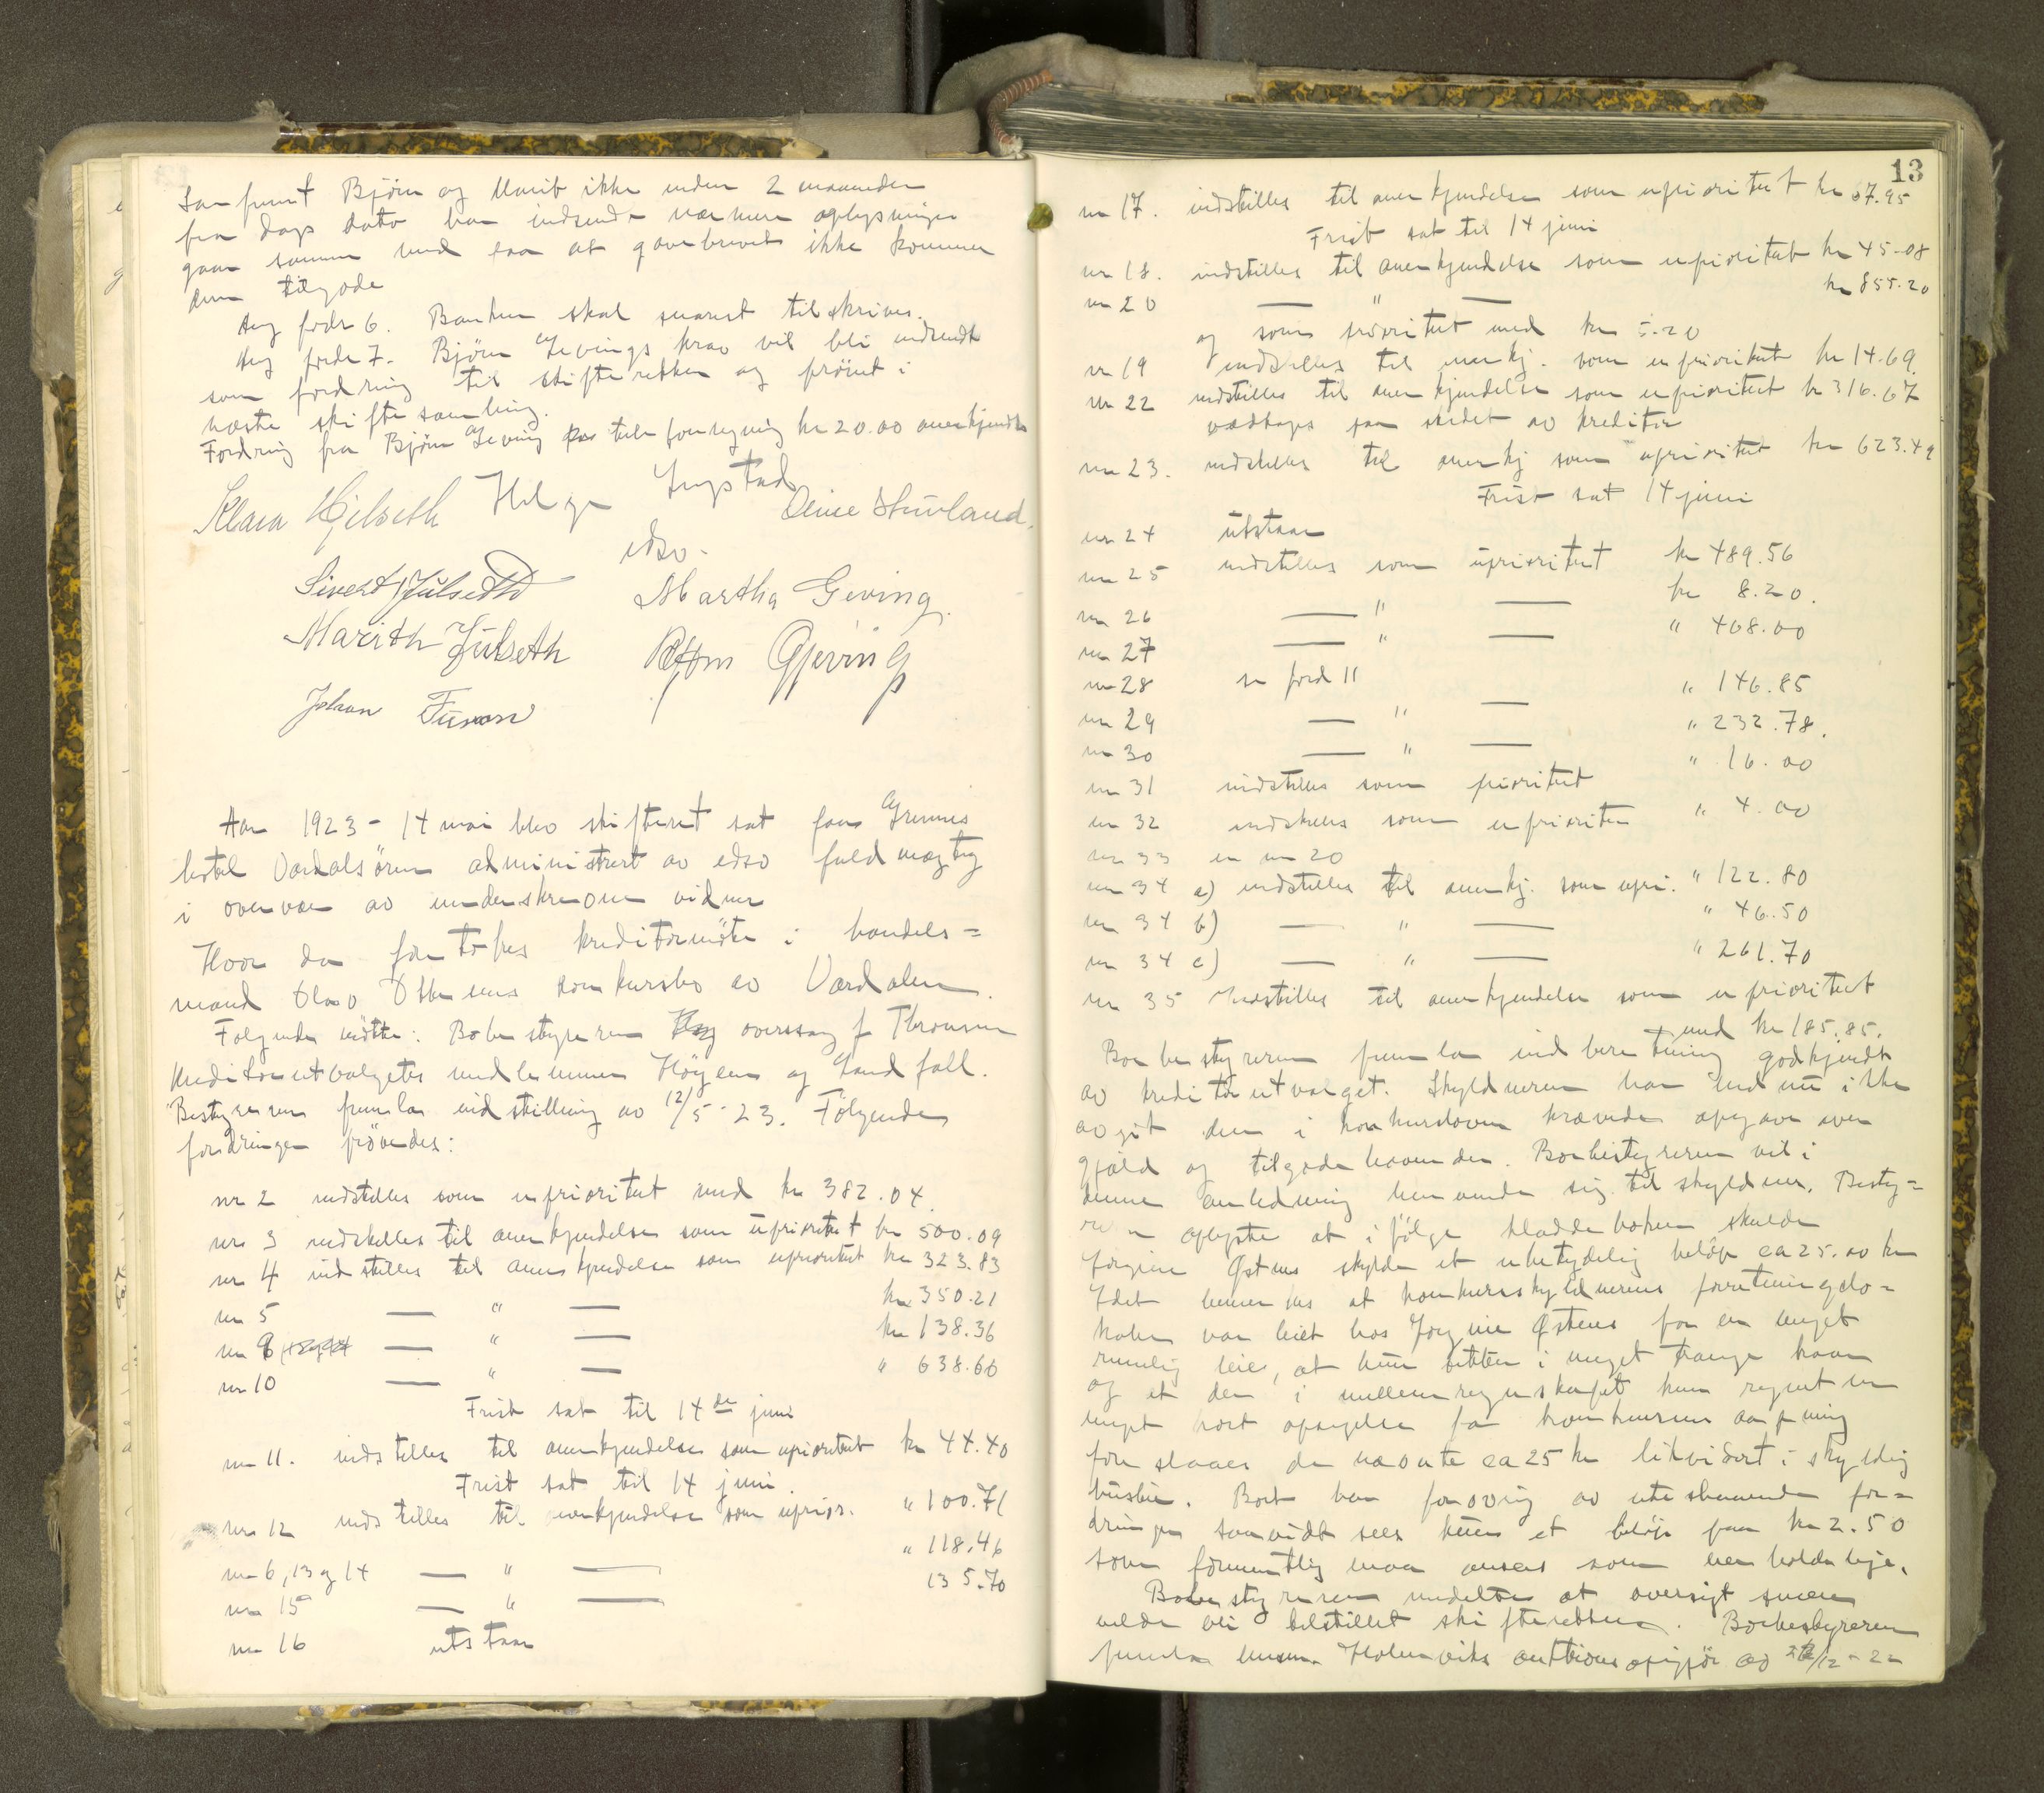 Saafremt Bjørn og Marit ikke inden 2 maaneder
fra dags dato har indsendt nærmere oplysninger
gaar samme med paa at gavebrevet ikke kommer
dem tilgode
Ang fordr 6. Banken skal snarest tilskrives.
Ang fordr 7. Bjørn Gevings krav vil bli indsendt
som fordring til skifteretten og prövet i
næste skiftesamling.
Fordring fra Bjørn Geving paa kr 20.00 anerkjendt
Helge Ingstad
Klara Hjelseth
edsv.
Sivert Julseth
Martha Geving.
Marith Julseth
Bjørn Gjeving
Johan
Aar 1923 - 14 mai blev skifteret sat paa Grennes
hotel Værdalsøren administrert av edsv fuldmægtig
i overvær av underskrevne vidner
Hvor da foretokes kreditormöte i handels=
mand Olav Østenens konkursbo av Værdalen.
Følgende mötte: Bobestyreren overssag f Thronsen
kreditorutvalgets medlemmer Höyem og Landfall.
Bestyreren fremla indstilling av 12/5-23. Følgende
fordringer prövedes:
nr 2 indstilles som uprioritert med kr 382.04.
nr 3 indstilles til anerkjendelse som uprioritert kr 500.09
nr 4 indstilles til anerkjendelse som uprioritert kr 323.83
nr 5 — " — kr 350.21
nr 9 — " — kr 138.36
nr 10 — " — " 638.60
Frist sat til 14de juni
nr 11. indstilles til anerkjendelse som uprioritert kr 44.40
Frist sat til 14 juni.
nr 12 indstilles til anerkjendelse som uprior. " 100.71
nr 6, 13 og 14 — " — " 118.46
nr 15 — " — 135.70
nr 16 utstaar
13
nr 17. indstilles til anerkjendelse som uprioritert kr 67.95
Frist sat til 14 juni
nr 18. indstilles til anerkjendelse som uprioritert kr 45.08
nr 20 — " — kr 855.20
og som prioritert med kr 5.20
nr 19 indstilles til anerkj. som uprioritert kr 14.69
nr 22 indstilles til anerkjendelse som uprioritert kr 316.67
vedtages paa stedet av kreditor
nr 23. indstilles til anerkj som uprioritert kr 623.49
Frist sat 14 juni
nr 24 utstaar
nr 25 indstilles som uprioritert kr 489.56
nr 26 — " — kr 8.20.
nr 27 — " — " 408.00
nr 28 se ford 11
nr 29 — " — " 146.85
nr 30 — " — " 232.78.
nr 31 indstilles som prioritert " 16.00
nr 32 indstilles som uprioriter " 4.00
nr 33 se nr 20
nr 34 a) indstilles til anerkj. som upri. " 122.80
nr 34 b) — " — " 46.50
nr 34 c) — " — " 261.70
nr 35 indstilles til anerkjendelse som uprioritert
med kr 185.85.
Bobestyreren fremla indberetning godkjendt
av kreditorutvalget. Skyldneren har endnu ikke
avgit den i konkursloven krævede opgave over
gjæld og tilgodehavender. Bobestyreren vil i
denne anledning henvende sig til skyldner. Besty=
reren oplyste at ifølge kladdeboken skulde
Jørgine Østens skylde et ubetydelig beløp ca 25.00 kr
Idet bemerkes at konkursskyldnerens forretningslo=
kaler var leiet hos Jørgine Østens for en meget
rimelig leie, at hun sitter i meget trange kaar
og at der i mellemregnskapet kun regnet en
meget kort opsigelse før konkursens aapning
foreslaaes de nævnte ca 25 kr likvidert i skyldig
husleie. Boet har forøvrig av utestaaende for=
dringer saavidt sees kun et beløp paa kr 2.50
som formentlig maa ansees som uerholdelige.
Bobestyreren meddelte at oversigt snarest
vilde bli tilstillet skifteretten. Bobestyreren
fremla Holmviks auktionsopgjör av /12-22